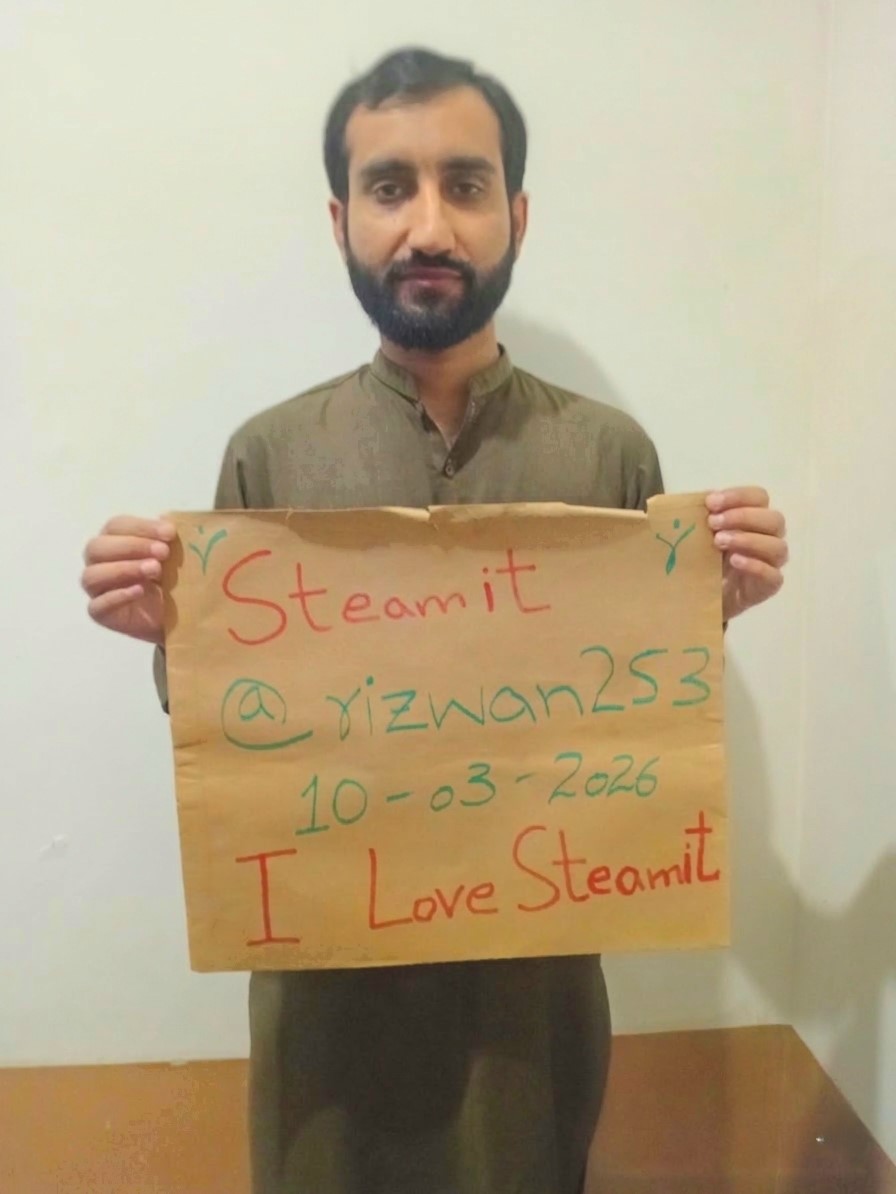 Steamit
@rizwan253
10-03-2026
I Love Steamit